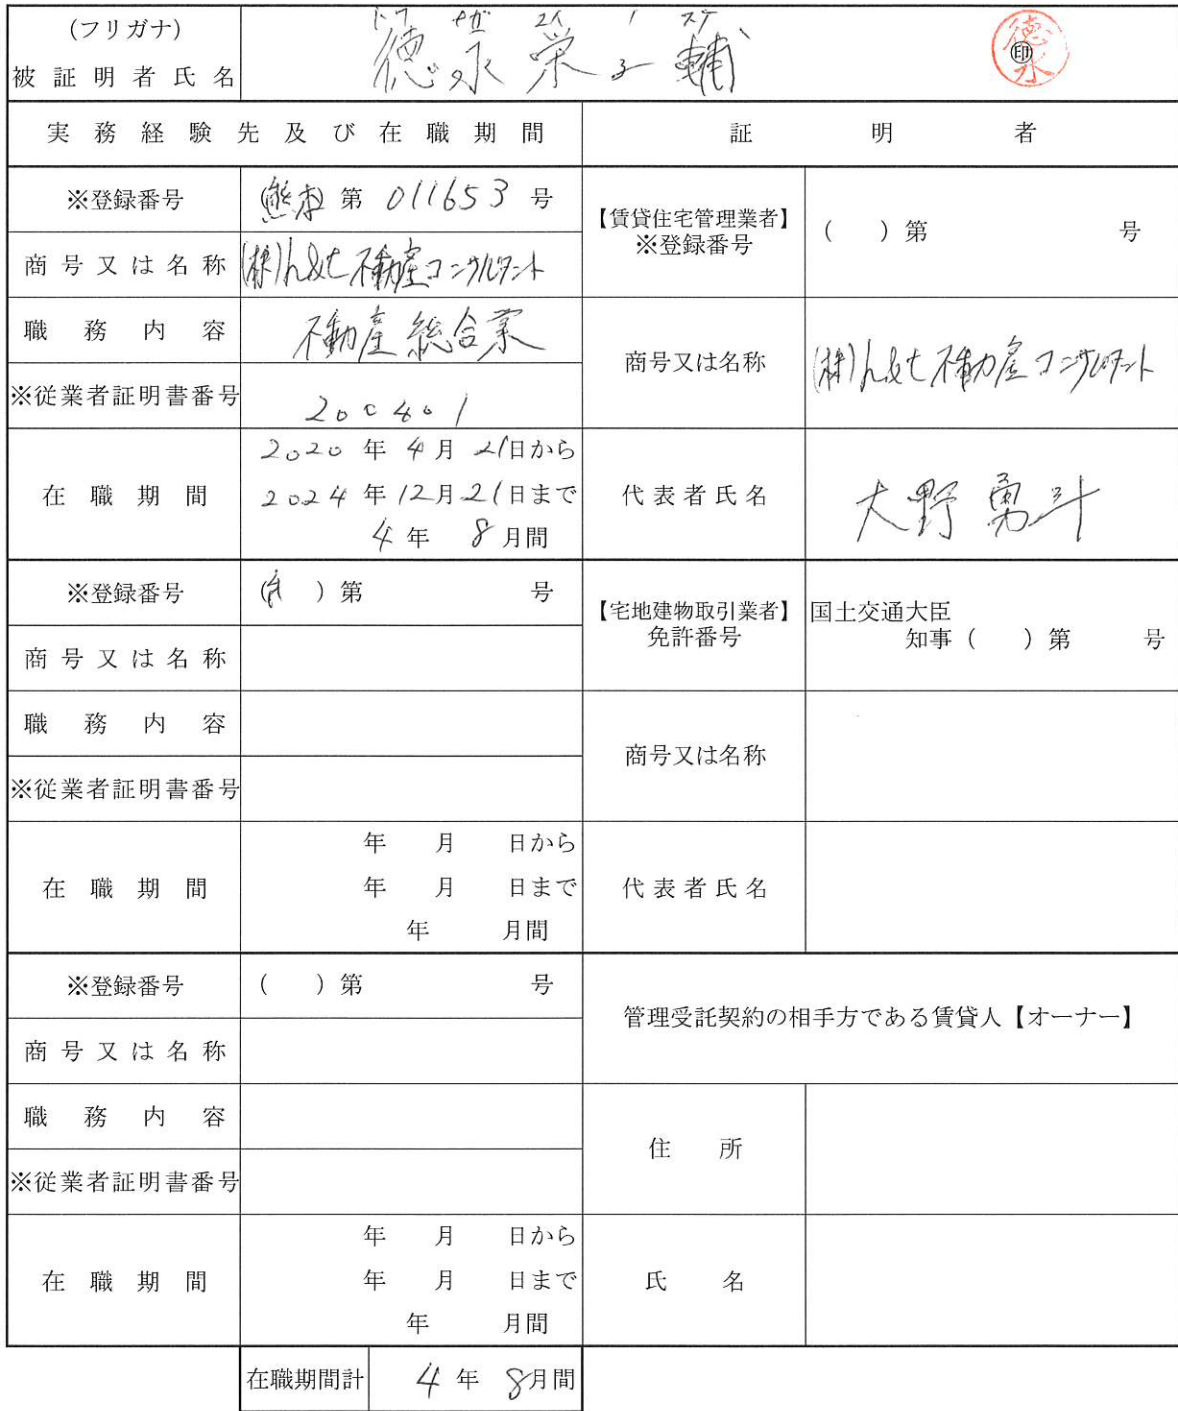 (フリガナ)
被証明者氏名
徳永 栄之輔
徳永
印
実務経験先及び在職期間
証明者
※登録番号
(熊本)第 011653 号
【賃貸住宅管理業者】
※登録番号
( )第 号
商号又は名称
(株)h&t不動産コンサルタント
職務内容
不動産総合業
商号又は名称
(株)h&t不動産コンサルタント
※従業者証明書番号
200401
在職期間
2020年4月21日から
2024年12月21日まで
4年 8月間
代表者氏名
大野勇斗
※登録番号
( )第 号
【宅地建物取引業者】
免許番号
国土交通大臣
知事( )第 号
商号又は名称
職務内容
商号又は名称
※従業者証明書番号
在職期間
年 月 日から
年 月 日まで
年 月間
代表者氏名
※登録番号
( )第 号
管理受託契約の相手方である賃貸人【オーナー】
商号又は名称
職務内容
住所
※従業者証明書番号
在職期間
年 月 日から
年 月 日まで
年 月間
氏名
在職期間計
4年 8月間